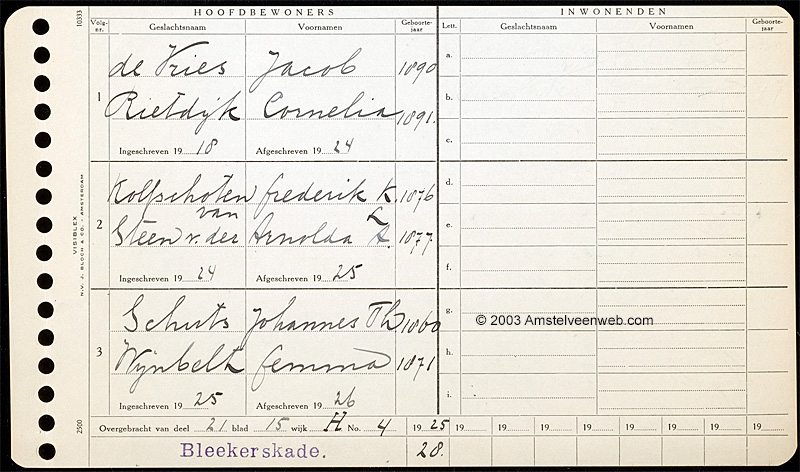 HOOFDBEWONERS
INWONENDEN
Volg-nr. Geslachtsnaam Voornamen Geboorte-jaar Lett. Geslachtsnaam Voornamen Geboorte-jaar
de Vries Jacob 1890 a.
1 Rietdijk Cornelia 1891. b.
c.
Ingeschreven 19 18 Afgeschreven 19 24
Kolfschoten Frederik K. 1876 d.
van L
2 Steen v. der Arnolda A. 1877 e.
f.
Ingeschreven 19 24 Afgeschreven 19 25
Schuts Johannes Th 1860 g.
© 2003 Amstelveenweb.com
3 Wijnbelt Gemma 1871 h.
i.
Ingeschreven 19 25 Afgeschreven 19 26
Overgebracht van deel 21 blad 15 wijk H No. 4 19 25 19 19 19 19 19 19 19
Bleekerskade. 28.
10333
VISIBLEX
N.V. J. BLOCH & CO. - AMSTERDAM
2500